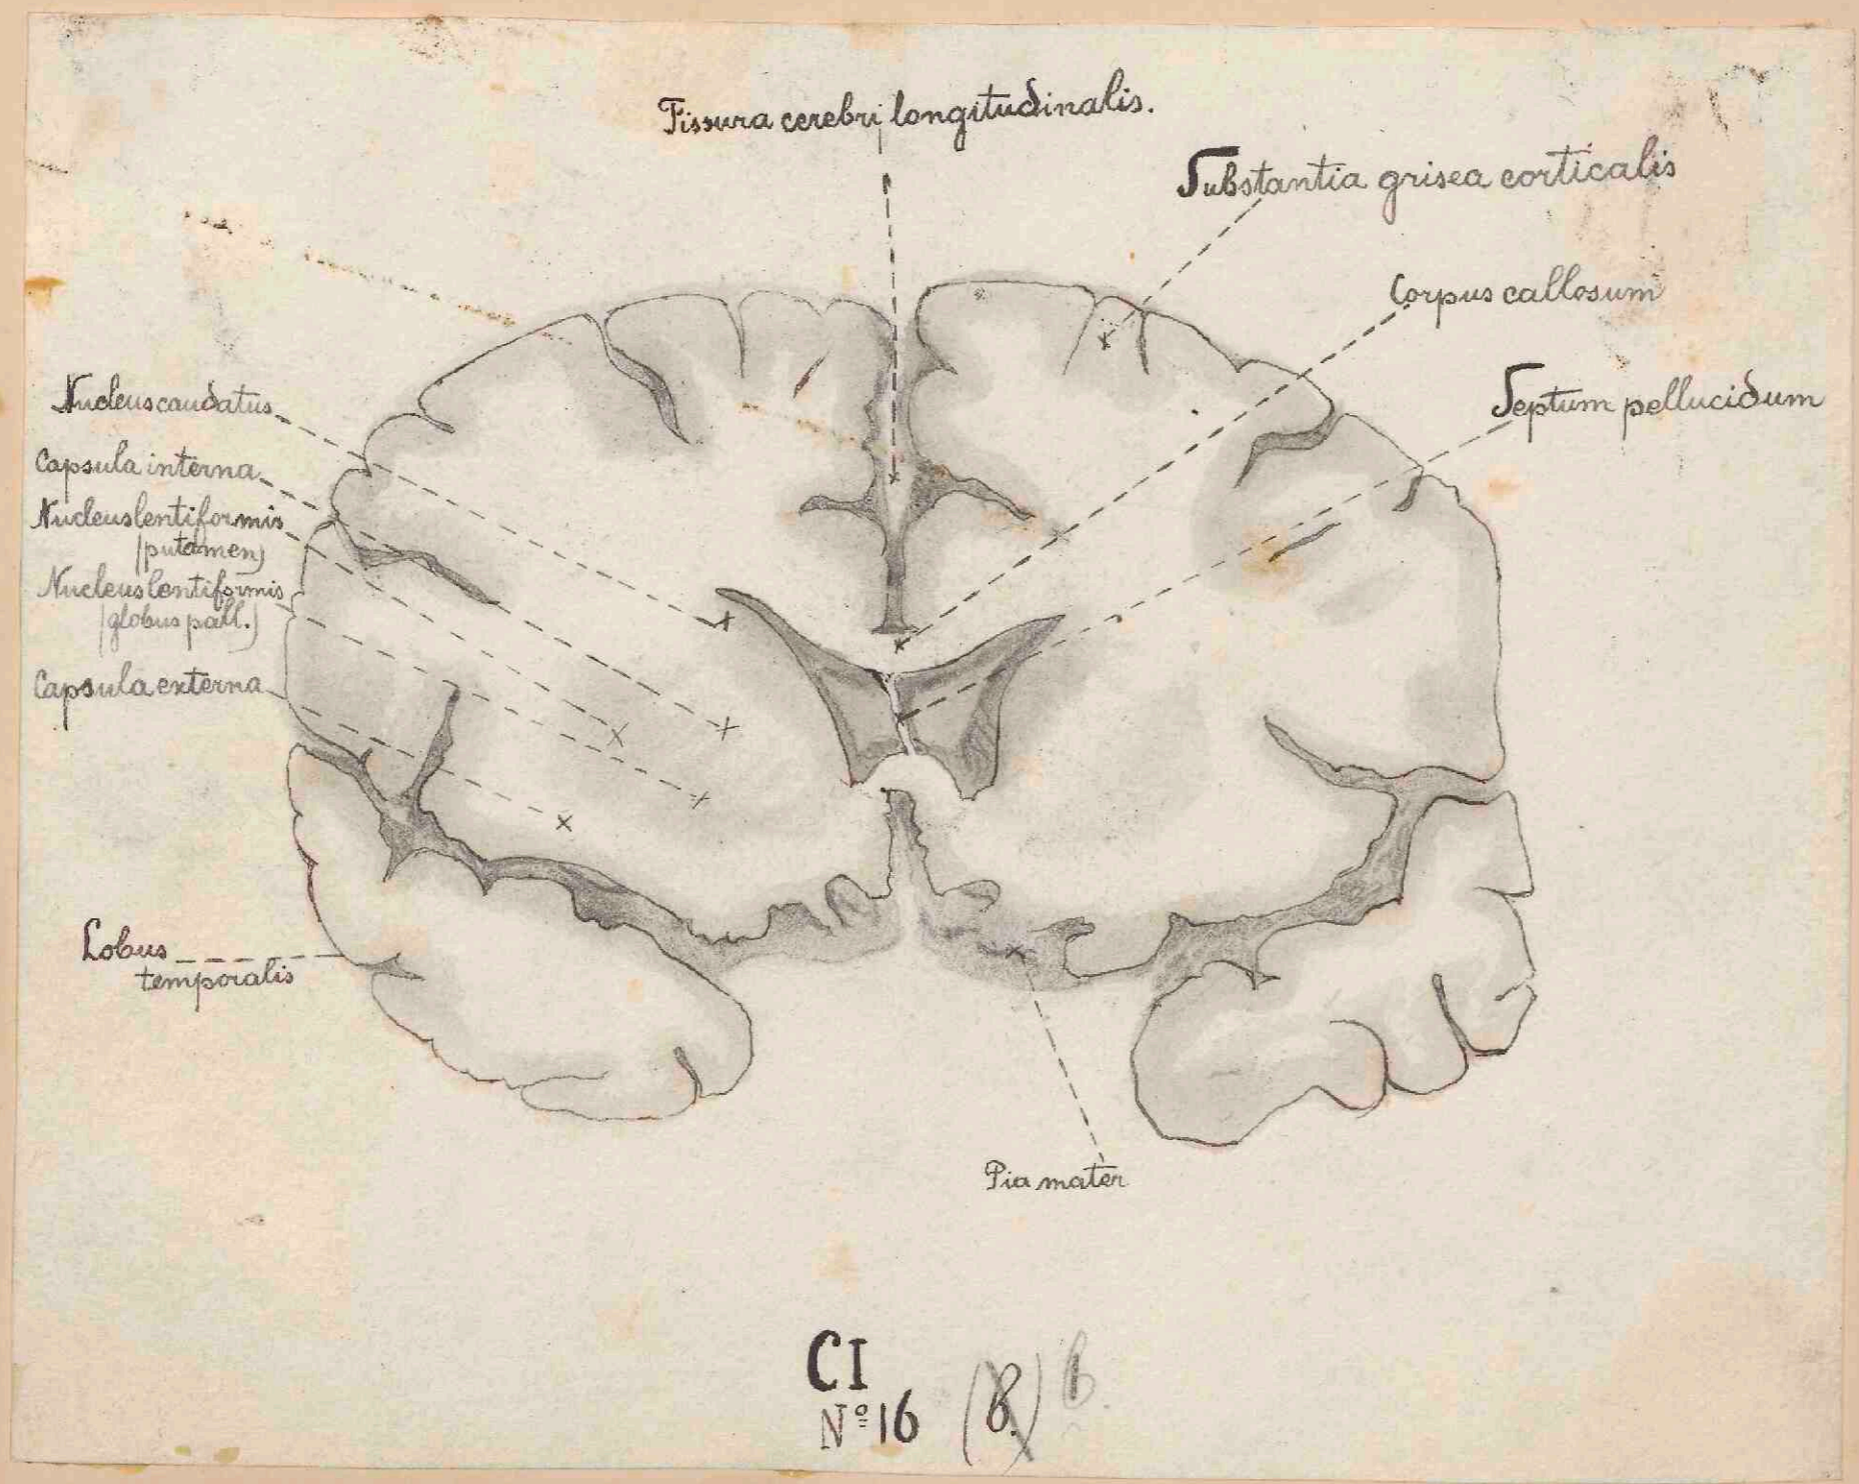 Fissura cerebri longitudinalis.
Substantia grisea corticalis
Corpus callosum
Septum pellucidum
Nucleus caudatus
Capsula interna
Nucleus lentiformis
(putamen)
Nucleus lentiformis
(globus pall.)
Capsula externa
Lobus
temporalis
Pia mater
CI
Nº 16 (B.) b.